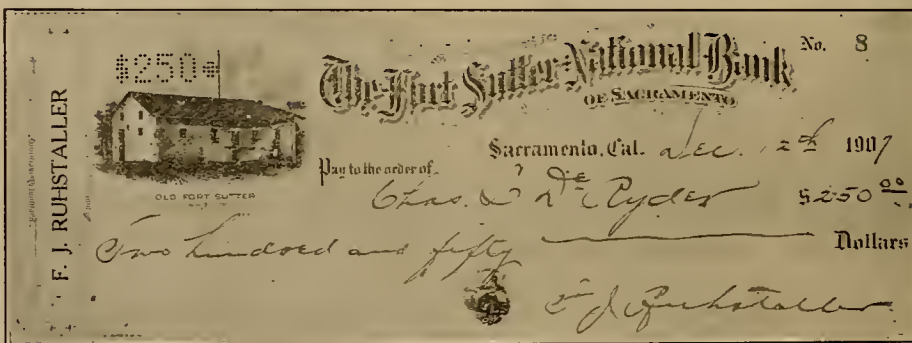 $250
F. J. RUHSTALLER
OLD FORT SUTTER
The Fort Sutter National Bank
OF SACRAMENTO
No. 8
Sacramento, Cal. Dec. 12th 1907
Pay to the order of
Chas. L. De Ryder $250 00
Two hundred and fifty Dollars
F J Ruhstaller